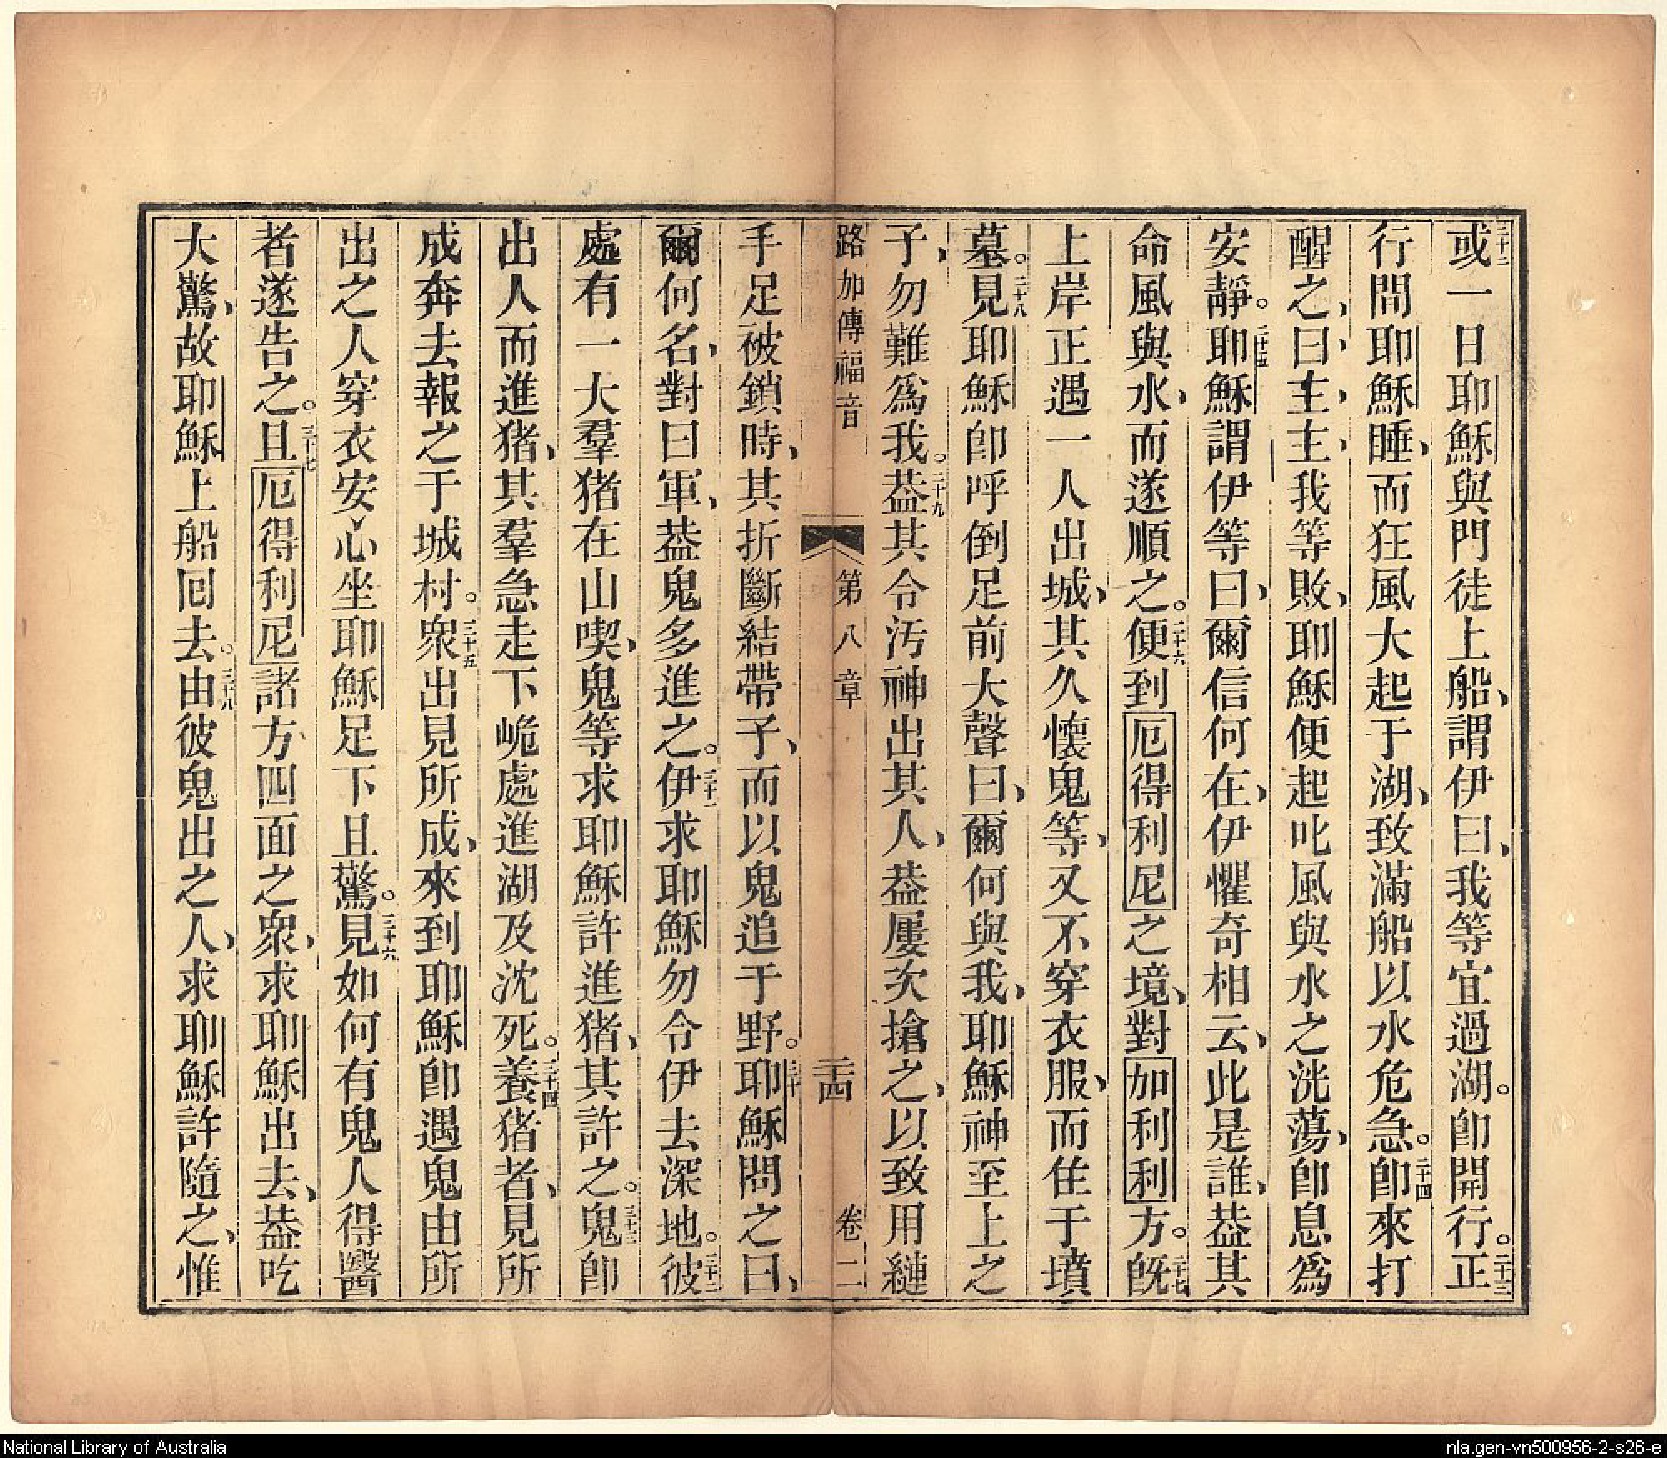 二十二或一日耶穌與門徒上船、謂伊曰、我等宜過湖。卽開行。二十三正
行間耶穌睡、而狂風大起于湖、致滿船以水危急。二十四卽來打
醒之、曰、主、主、我等敗、耶穌便起叱風與水之洸蕩、卽息爲
安靜。二十五耶穌謂伊等曰、爾信何在、伊懼奇相云、此是誰、葢其
命風與水、而遂順之。二十六便到厄得利尼之境、對加利利方。二十七旣
上岸正遇一人出城、其久懷鬼等、又不穿衣服、而住于墳
墓。二十八見耶穌卽呼倒足前大聲曰、爾何與我、耶穌神至上之
子、勿難爲我。二十九葢其令汚神出其人、葢屢次搶之、以致用縺
路加傳福音 第八章 二十四 卷二
手足被鎖時、其折斷結帶子、而以鬼追于野。三十耶穌問之曰、
爾何名、對曰軍、葢鬼多進之。三十一伊求耶穌勿令伊去深地。三十二彼
處有一大羣猪在山喫、鬼等求耶穌許進猪、其許之。三十三鬼卽
出人而進猪、其羣急走下峗處進湖及沈死。三十四養猪者、見所
成奔去報之于城村。三十五衆出見所成、來到耶穌卽遇鬼由所
出之人穿衣安心坐耶穌足下且驚。三十六見如何有鬼人得醫
者遂告之。三十七且厄得利尼諸方四面之衆、求耶穌出去、葢吃
大驚、故耶穌上船囘去。三十八由彼鬼出之人、求耶穌許隨之、惟
National Library of Australia
nla.gen-vn500956-2-s26-e